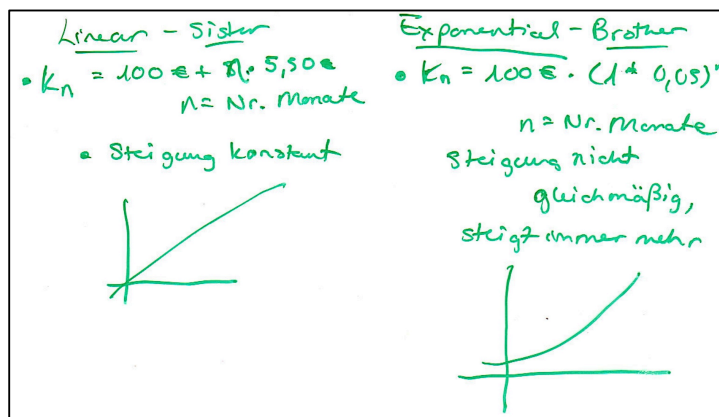 Linear - Sister
• Kn = 100 € + n · 5,50 €
n = Nr. Monate
• Steigung konstant
Exponential - Brother
• Kn = 100 € · (1 + 0,05)ⁿ
n = Nr. Monate
Steigung nicht
gleichmäßig,
steigt immer mehr